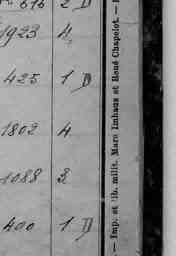 616 2 D
1923 4
425 1 D
1802 4
1088 2
400 1 D
— Imp. et lib. milit. Marc Imhaus et René Chapelot. —